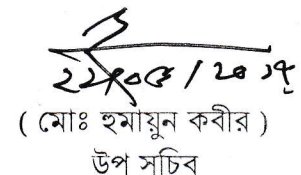 ২২/০৫/২০১৭
( মোঃ হুমায়ুন কবীর )
উপ সচিব